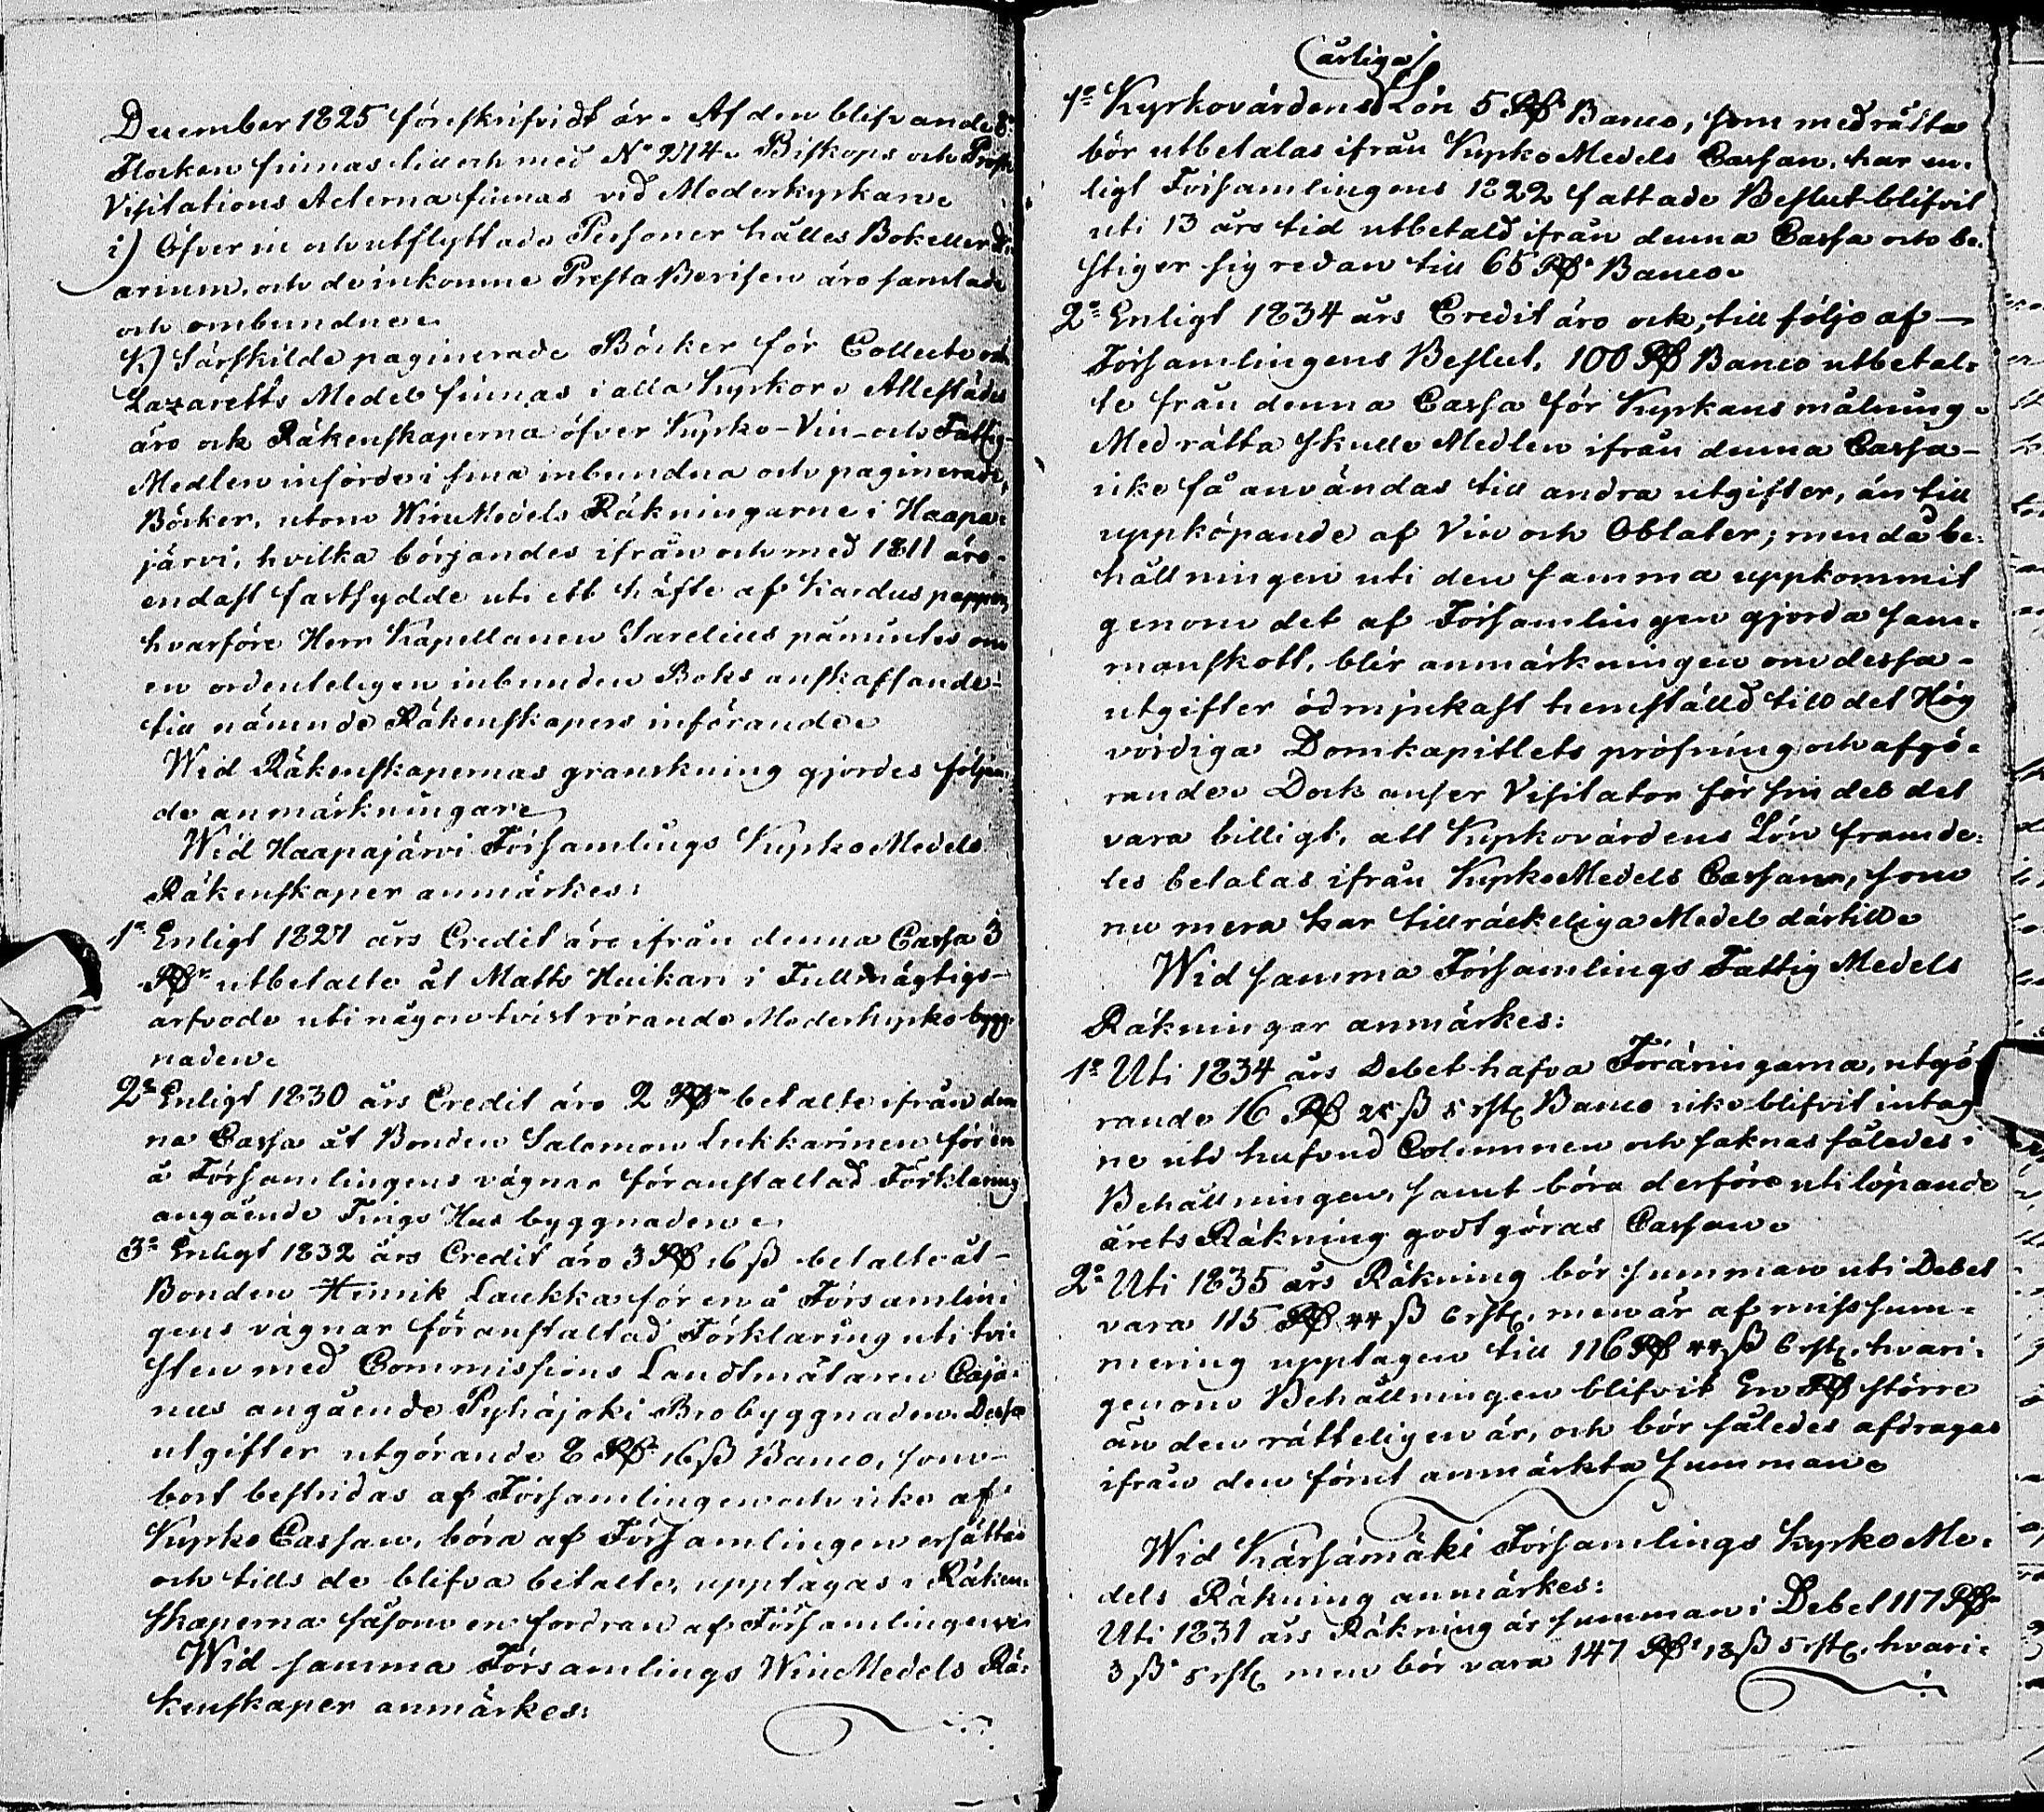 December 1825 föreskrifvidt är. Af den blifvande 8:
Flocken finnas till och med N:o 2714. Biskops och Prosts
Visitations Acterna finnas vid Moderkyrkan.
i) Öfver in och utflyttade Personer hålles Bok eller Di
arium, och de inkomne PrestaBevisen äro samlade
och ombundne.
K) Särskilde paginerade Böcker för Collecte och
Lazaretts Medel finnas i alla Kyrkor. Allestädes
äro ock Räkenskaperna öfver Kyrko-Vin- och Fattig-
Medlen införde i sina inbundna och paginerade,
Böcker, utom WinMedels Räkningarne i Haapa-
järvi, hvilka börjandes ifrån och med 1811 äro
endast fastsydde uti ett häfte af Kardus papper,
hvarföre Herr Kapellanen Sarelius påmintes om
en ordenteligen inbunden Boks anskaffande
till nämnde Räkenskapers införande.
Wid Räkenskapernas granskning gjordes följan-
de anmärkningar:
Wid Haapajärvi Församlings KyrkoMedels
Räkenskaper anmärkes:
1:o Enligt 1827 års Credit äro ifrån denna Cassa 3
Rd:r utbetalte åt Matts Huikari i Fullmägtigs-
arfvode uti någon tvist rörande Moderkyrko bygg-
naden.
2:o Enligt 1830 års Credit äro 2 Rd:r betalte ifrån den
na Cassa åt Bonden Salomon Lukkarinen för en
å Församlingens vägnar föranstaltad Förklaring
angående Tings Hus byggnaden.
3:o Enligt 1832 års Credit äro 3 Rd 16 ß betalte åt
Bonden Henrik Laukka för en å Försam̅lin-
gens vägnar föranstaltad Förklaring uti tvi-
sten med Commissions Landtmätaren Caja-
nus angående Pyhäjoki Brobyggnaden. Dessa
utgifter utgörande 8 Rd:r 16 ß Banco, som
bort bestridas af Församlingen och icke af
Kyrko Cassan, böra af Församlingen ersättas
och tills de blifva betalte, upptagas i Räken-
skaperna såsom en fordran af Församlingen.
Wid samma Församlings WinMedels Rä-
kenskaper anmärkes:
årliga
1:o Kyrkovärdens Lön 5 Rd:r Banco, som med rätta
bör utbetalas ifrån KyrkoMedels Cassan, har en-
ligt Församlingens 1822 fattade Beslut blifvit
uti 13 års tid utbetald ifrån denna Cassa och be-
stiger sig redan till 65 Rd:r Banco.
2:o Enligt 1834 års Credit äro ock, till följe af —
Församlingens Beslut, 100 Rd Banco utbetal-
te från denna Cassa för Kyrkans målning.
Med rätta skulle Medlen ifrån denna Cassa —
icke få användas till andra utgifter, än till
uppköpande af Vin och Oblater; men då be-
hållningen uti den samma uppkommit
genom det af Församlingen gjorda sam-
manskott, blir anmärkningen om dessa —
utgifter ödmjukast hemställd till det Hög
vördiga Domkapitlets pröfning och afgö-
rande. Dock anser Visitator för sin del det
vara billigt, att Kyrkovärdens Lön framde-
les betalas ifrån KyrkoMedels Cassan, som
nu mera har tillräckeliga Medel därtill.
Wid samma Församlings Fattig Medels
Räkningar anmärkes:
1:o Uti 1834 års Debet hafva Föräringarna, utgö-
rande 16 Rd 25 ß 5 rst. Banco icke blifvit intag
ne uti hufvud Columnen och saknas således i
Behållningen, samt böra derföre uti löpande
årets Räkning godtgöras Cassan.
2:o Uti 1835 års Räkning bör summan uti Debet
vara 115 Rd 44 ß 6 rst. men är af miss sum-
mering upptagen till 116 Rd 44 ß 6 rst. hvari-
genom Behållningen blifvit En Rd större
än den rätteligen är, och bör således afdragas
ifrån den förut anmärkta summan.
Wid Kärsämäki Församlings KyrkoMe-
dels Räkning anmärkes:
Uti 1831 års Räkning är summan i Debet 117 Rd:r
3 ß 5 rst. men bör vara 147 Rd:r 13 ß 5 rst. hvari-